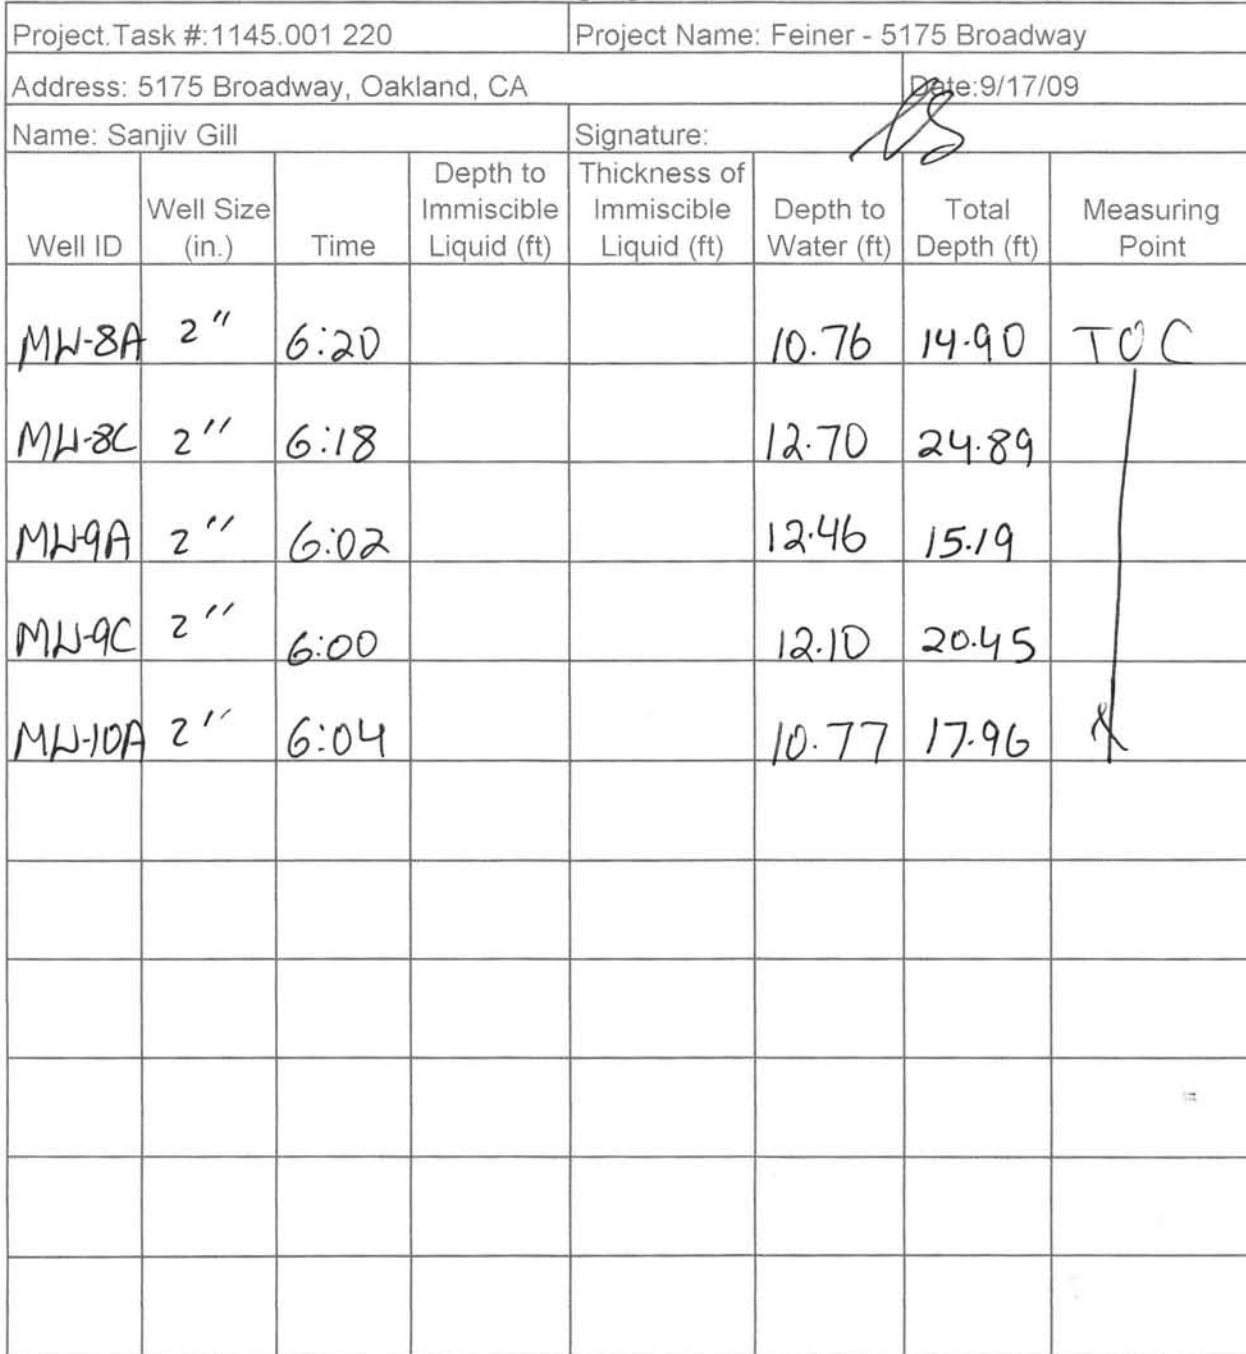 Project.Task #:1145.001 220 Project Name: Feiner - 5175 Broadway
Address: 5175 Broadway, Oakland, CA Date:9/17/09
Name: Sanjiv Gill Signature:
Well ID Well Size (in.) Time Depth to Immiscible Liquid (ft) Thickness of Immiscible Liquid (ft) Depth to Water (ft) Total Depth (ft) Measuring Point
MW-8A 2" 6:20 10.76 14.90 TOC
MW-8C 2" 6:18 12.70 24.89
MW-9A 2" 6:02 12.46 15.19
MW-9C 2" 6:00 12.10 20.45
MW-10A 2" 6:04 10.77 17.96